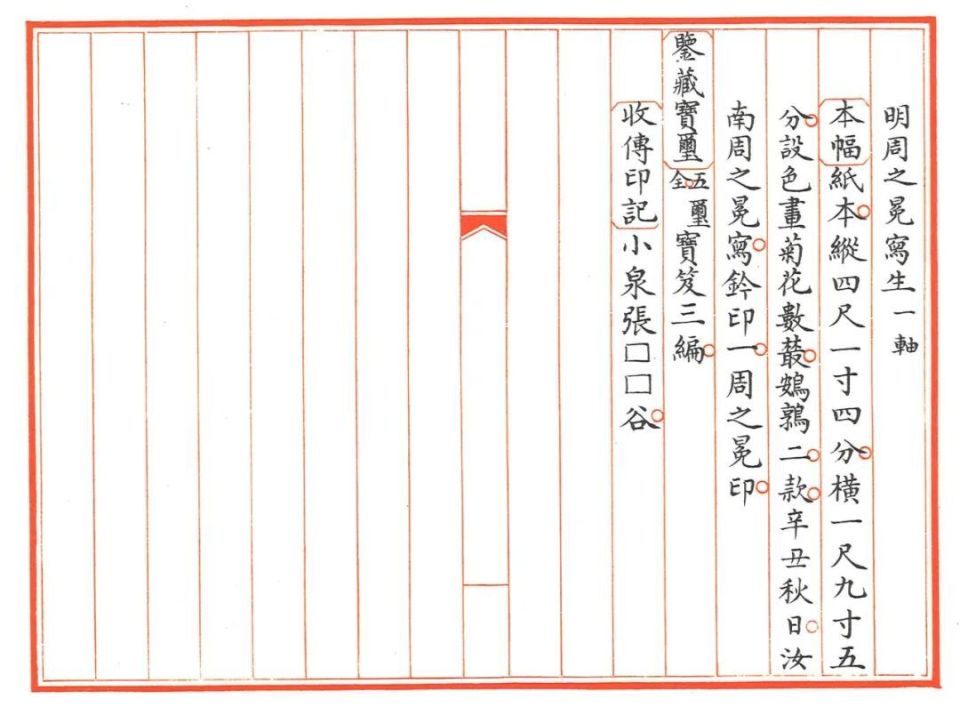 明周之冕寫生一軸
本幅紙本縱四尺一寸四分橫一尺九寸五
分設色畫菊花數叢鵪鶉二款辛丑秋日汝
南周之冕寫鈐印一周之冕印
鑒藏寶璽五璽全寶笈三編
收傳印記小泉張□□谷